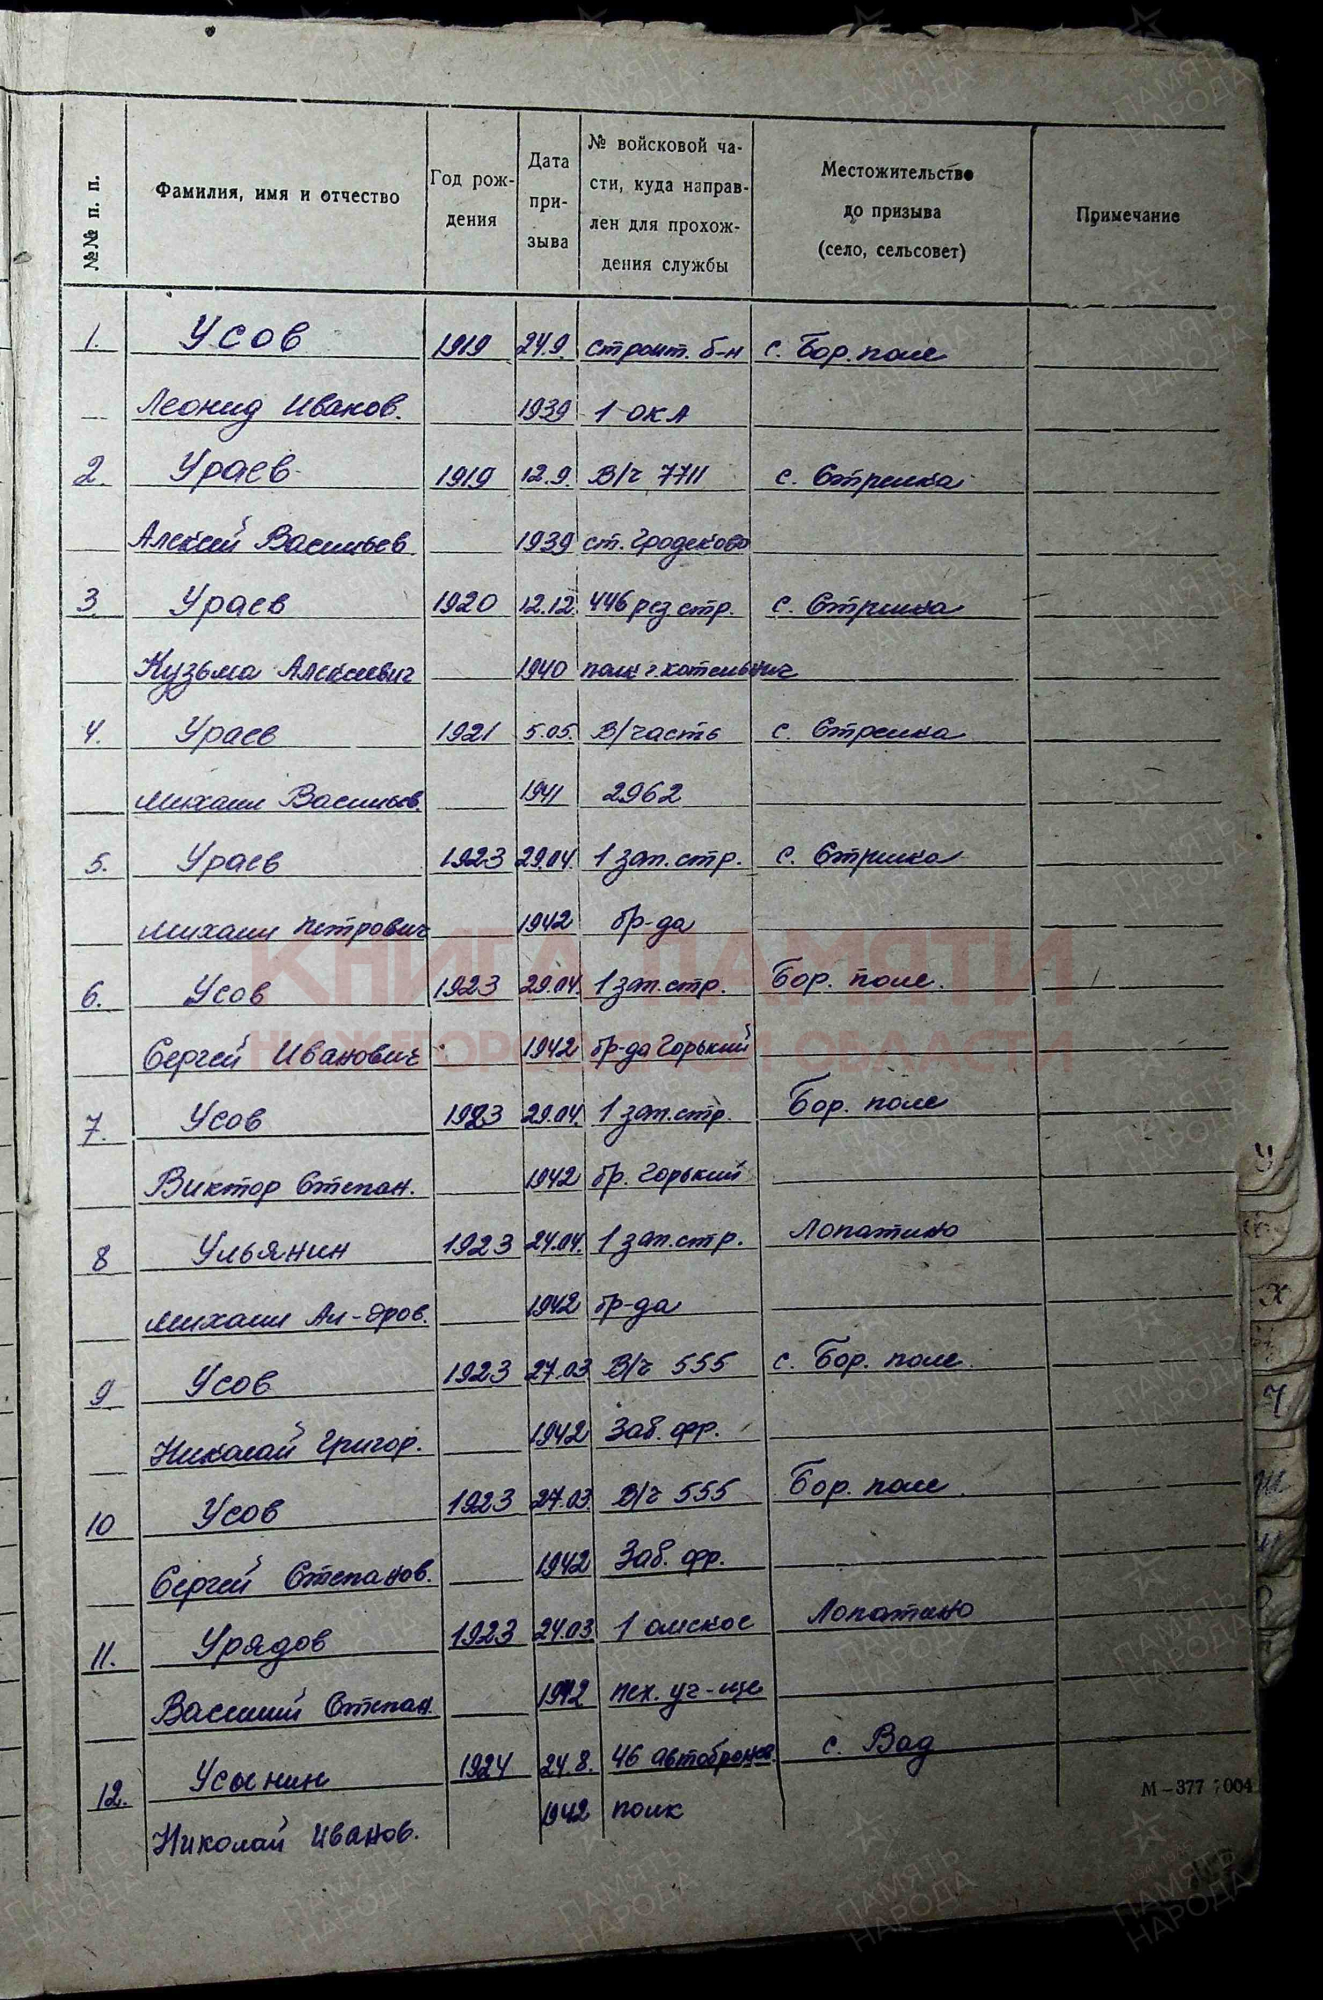 №№ п. п.
Фамилия, имя и отчество
Год рож-
дения
Дата
при-
зыва
№ войсковой ча-
сти, куда направ-
лен для прохож-
дения службы
Местожительство
до призыва
(село, сельсовет)
Примечание
1. Усов 1919 24.9. строит. б-н с. Бор. поле
Леонид Иванов. 1939 1 ОКА
2. Ураев 1919 12.9. В/ч 7711 с. Стрелка
Алексей Васильев 1939 ст. Гродеково
3 Ураев 1920 12.12. 446 рез стр. с. Стрелка
Кузьма Алексеевич 1940 полк г. Котельнич
4. Ураев 1921 5.05. В/часть с. Стрелка
Михаил Васильев. 1941 2962
5. Ураев 1923 29.04. 1 зап. стр. с. Стрелка
Михаил Петрович 1942 бр-да
6. Усов 1923 29.04. 1 зап. стр. Бор. поле.
Сергей Иванович 1942 бр-да Горький
7. Усов 1923 29.04. 1 зап. стр. Бор. поле
Виктор Степан. 1942 бр. Горький
8 Ульянин 1923 24.04. 1 зап. стр. Лопатино
Михаил Ал-дров. 1942 бр-да
9 Усов 1923 27.03 В/ч 555 с. Бор. поле.
Николай Григор. 1942 Заб. фр.
10 Усов 1923 27.03. В/ч 555 Бор. поле.
Сергей Степанов. 1942 Заб. фр.
11. Урядов 1923 24.03. 1 омское Лопатино
Василий Степан. 1942 пех. уч-ще
12. Усынин 1924 24.8. 46 автобронев. с. Вад
Николай Иванов. 1942 полк
М-377
004
КНИГА ПАМЯТИ
НИЖЕГОРОДСКОЙ ОБЛАСТИ
ПАМЯТЬ НАРОДА
У
Х
Ч